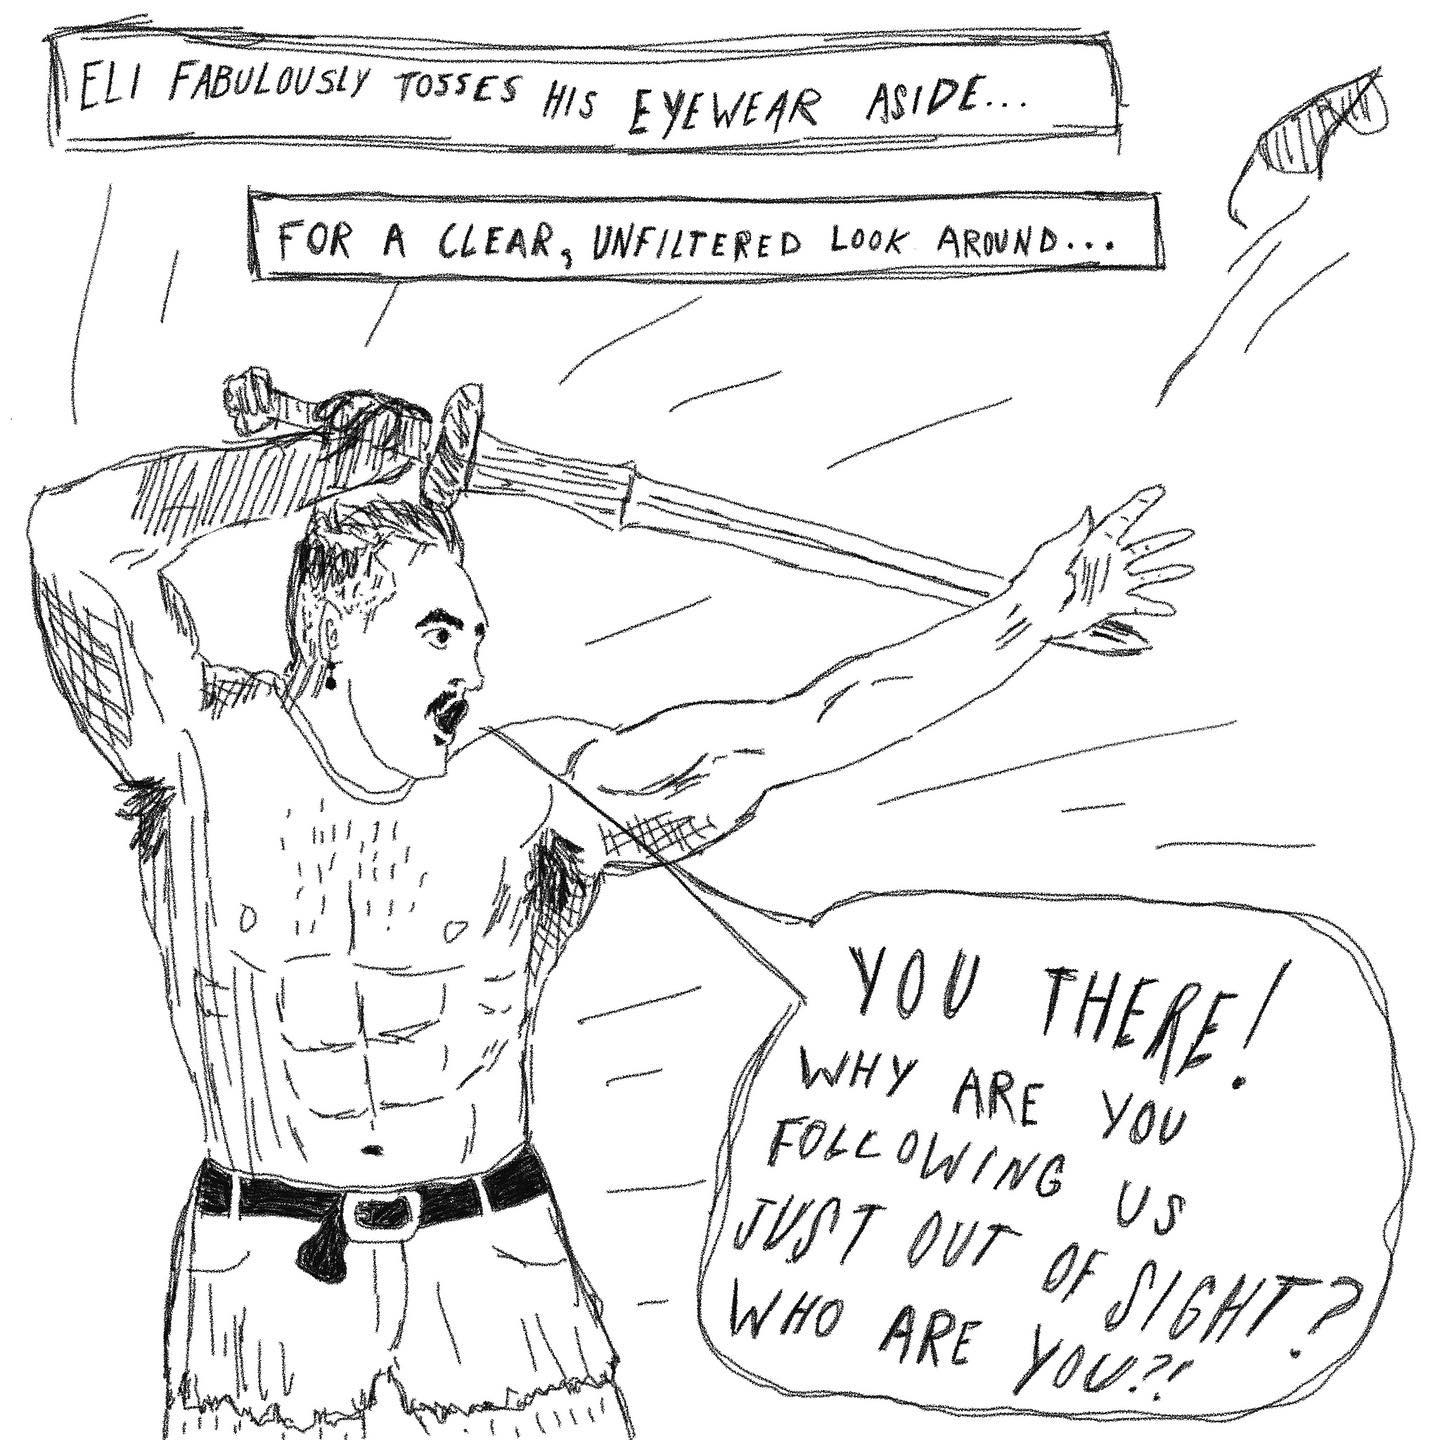 ELI FABULOUSLY TOSSES HIS EYEWEAR ASIDE...
FOR A CLEAR, UNFILTERED LOOK AROUND...
YOU THERE!
WHY ARE YOU
FOLLOWING US
JUST OUT OF SIGHT?
WHO ARE YOU?!